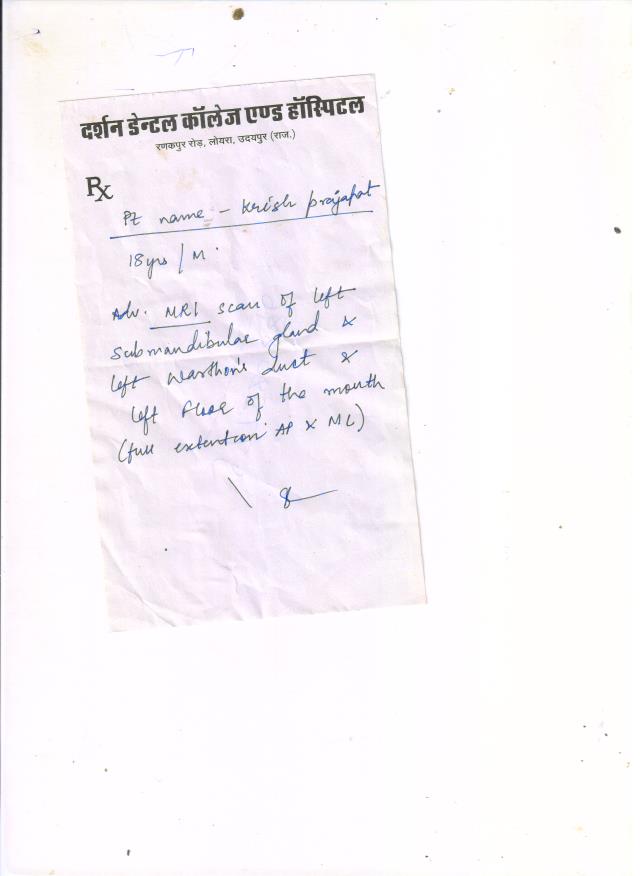 दर्शन डेन्टल कॉलेज एण्ड हॉस्पिटल
रणकपुर रोड़, लोयरा, उदयपुर (राज.)
Rx
Pt name - Krish prajapat
18yrs / M
Adv. MRI scan of left
submandibular gland &
left Warthon's duct &
left floor of the mouth
(full extention AP x ML)